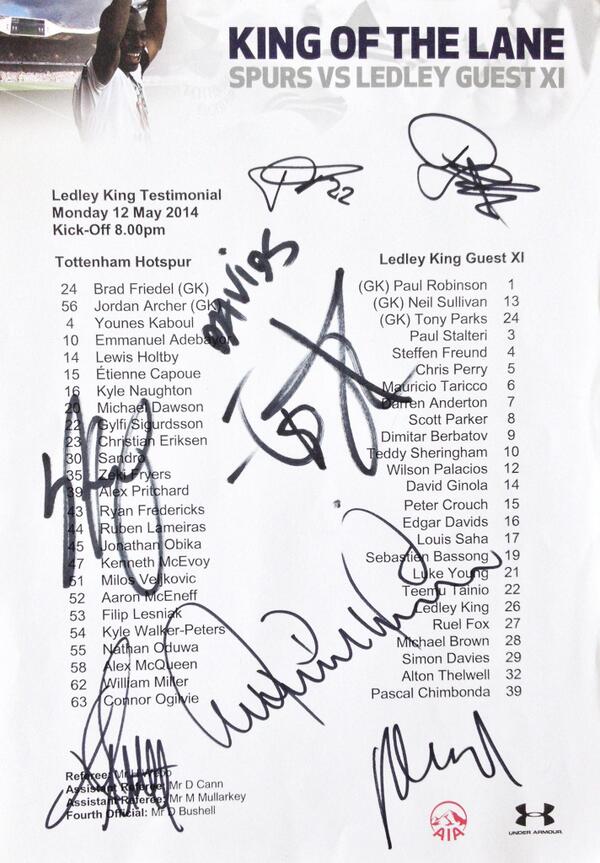 KING OF THE LANE
SPURS VS LEDLEY GUEST XI
Ledley King Testimonial
Monday 12 May 2014
Kick-Off 8.00pm
22
DAVIDS
Tottenham Hotspur
24 Brad Friedel (GK)
56 Jordan Archer (GK)
4 Younes Kaboul
10 Emmanuel Adebayor
14 Lewis Holtby
15 Étienne Capoue
16 Kyle Naughton
20 Michael Dawson
22 Gylfi Sigurdsson
23 Christian Eriksen
30 Sandro
35 Zeki Fryers
39 Alex Pritchard
43 Ryan Fredericks
44 Ruben Lameiras
45 Jonathan Obika
47 Kenneth McEvoy
51 Milos Veljkovic
52 Aaron McEneff
53 Filip Lesniak
54 Kyle Walker-Peters
55 Nathan Oduwa
58 Alex McQueen
62 William Miller
63 Connor Ogilvie
Ledley King Guest XI
(GK) Paul Robinson 1
(GK) Neil Sullivan 13
(GK) Tony Parks 24
Paul Stalteri 3
Steffen Freund 4
Chris Perry 5
Mauricio Taricco 6
Darren Anderton 7
Scott Parker 8
Dimitar Berbatov 9
Teddy Sheringham 10
Wilson Palacios 12
David Ginola 14
Peter Crouch 15
Edgar Davids 16
Louis Saha 17
Sebastien Bassong 19
Luke Young 21
Teemu Tainio 22
Ledley King 26
Ruel Fox 27
Michael Brown 28
Simon Davies 29
Alton Thelwell 32
Pascal Chimbonda 39
Referee: Mr
Assistant Referee: Mr D Cann
Assistant Referee: Mr M Mullarkey
Fourth Official: Mr D Bushell
AIA
UNDER ARMOUR